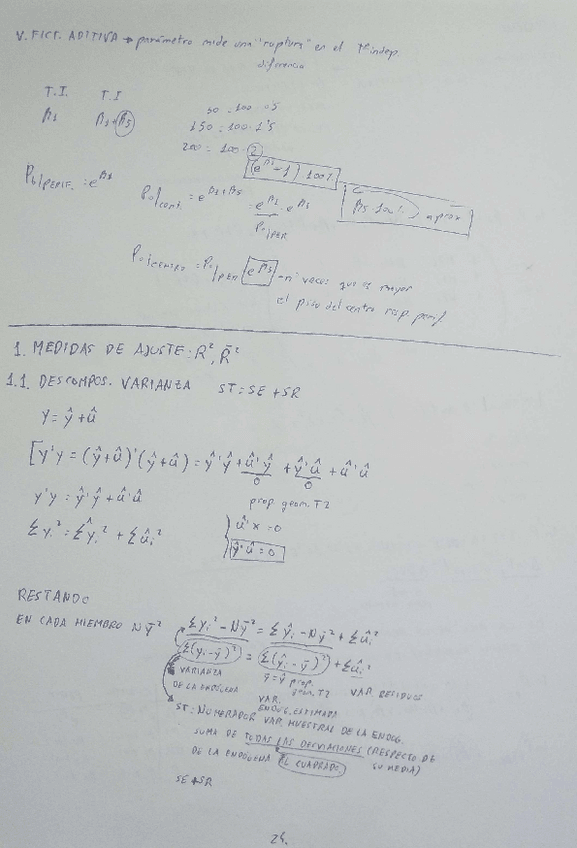 V. FICT. ADITIVA → parámetro mide una "ruptura" en el T.indep.
diferencia
T.I. T.I
β1 β1+β5
50 = 100 · 0'5
150 = 100 · 1'5
200 = 100 · 2
(e^β5 - 1) 100%
β5 · 100% aprox
P0|PERIF. = e^β1
P0|cent = e^(β1+β5) = e^β1 · e^β5
P0|PER
P0|CENTRO = P0|PER e^β5 → nº veces que es mayor
el piso del centro resp. perif.
1. MEDIDAS DE AJUSTE: R², R̄²
1.1. DESCOMPOS. VARIANZA ST = SE + SR
y = ŷ + û
[y'y = (ŷ+û)'(ŷ+û) = ŷ'ŷ + û'ŷ + ŷ'û + û'û
0 0
y'y = ŷ'ŷ + û'û prop. geom. T2
Σyi² = Σŷi² + Σûi²
û'x = 0
ŷ'û = 0
RESTANDO
EN CADA MIEMBRO Nȳ² Σyi² - Nȳ² = Σŷi² - Nȳ² + Σûi²
Σ(yi - ȳ)² = Σ(ŷi - ȳ)² + Σûi²
VARIANZA DE LA ENDÓGENA
ȳ = ŷ prop. geom. T2
VAR. ENDÓG. ESTIMADA
VAR. RESIDUOS
ST: NUMERADOR VAR. MUESTRAL DE LA ENDOG.
SUMA DE TODAS LAS DESVIACIONES (RESPECTO DE SU MEDIA)
DE LA ENDÓGENA AL CUADRADO
SE + SR
24.